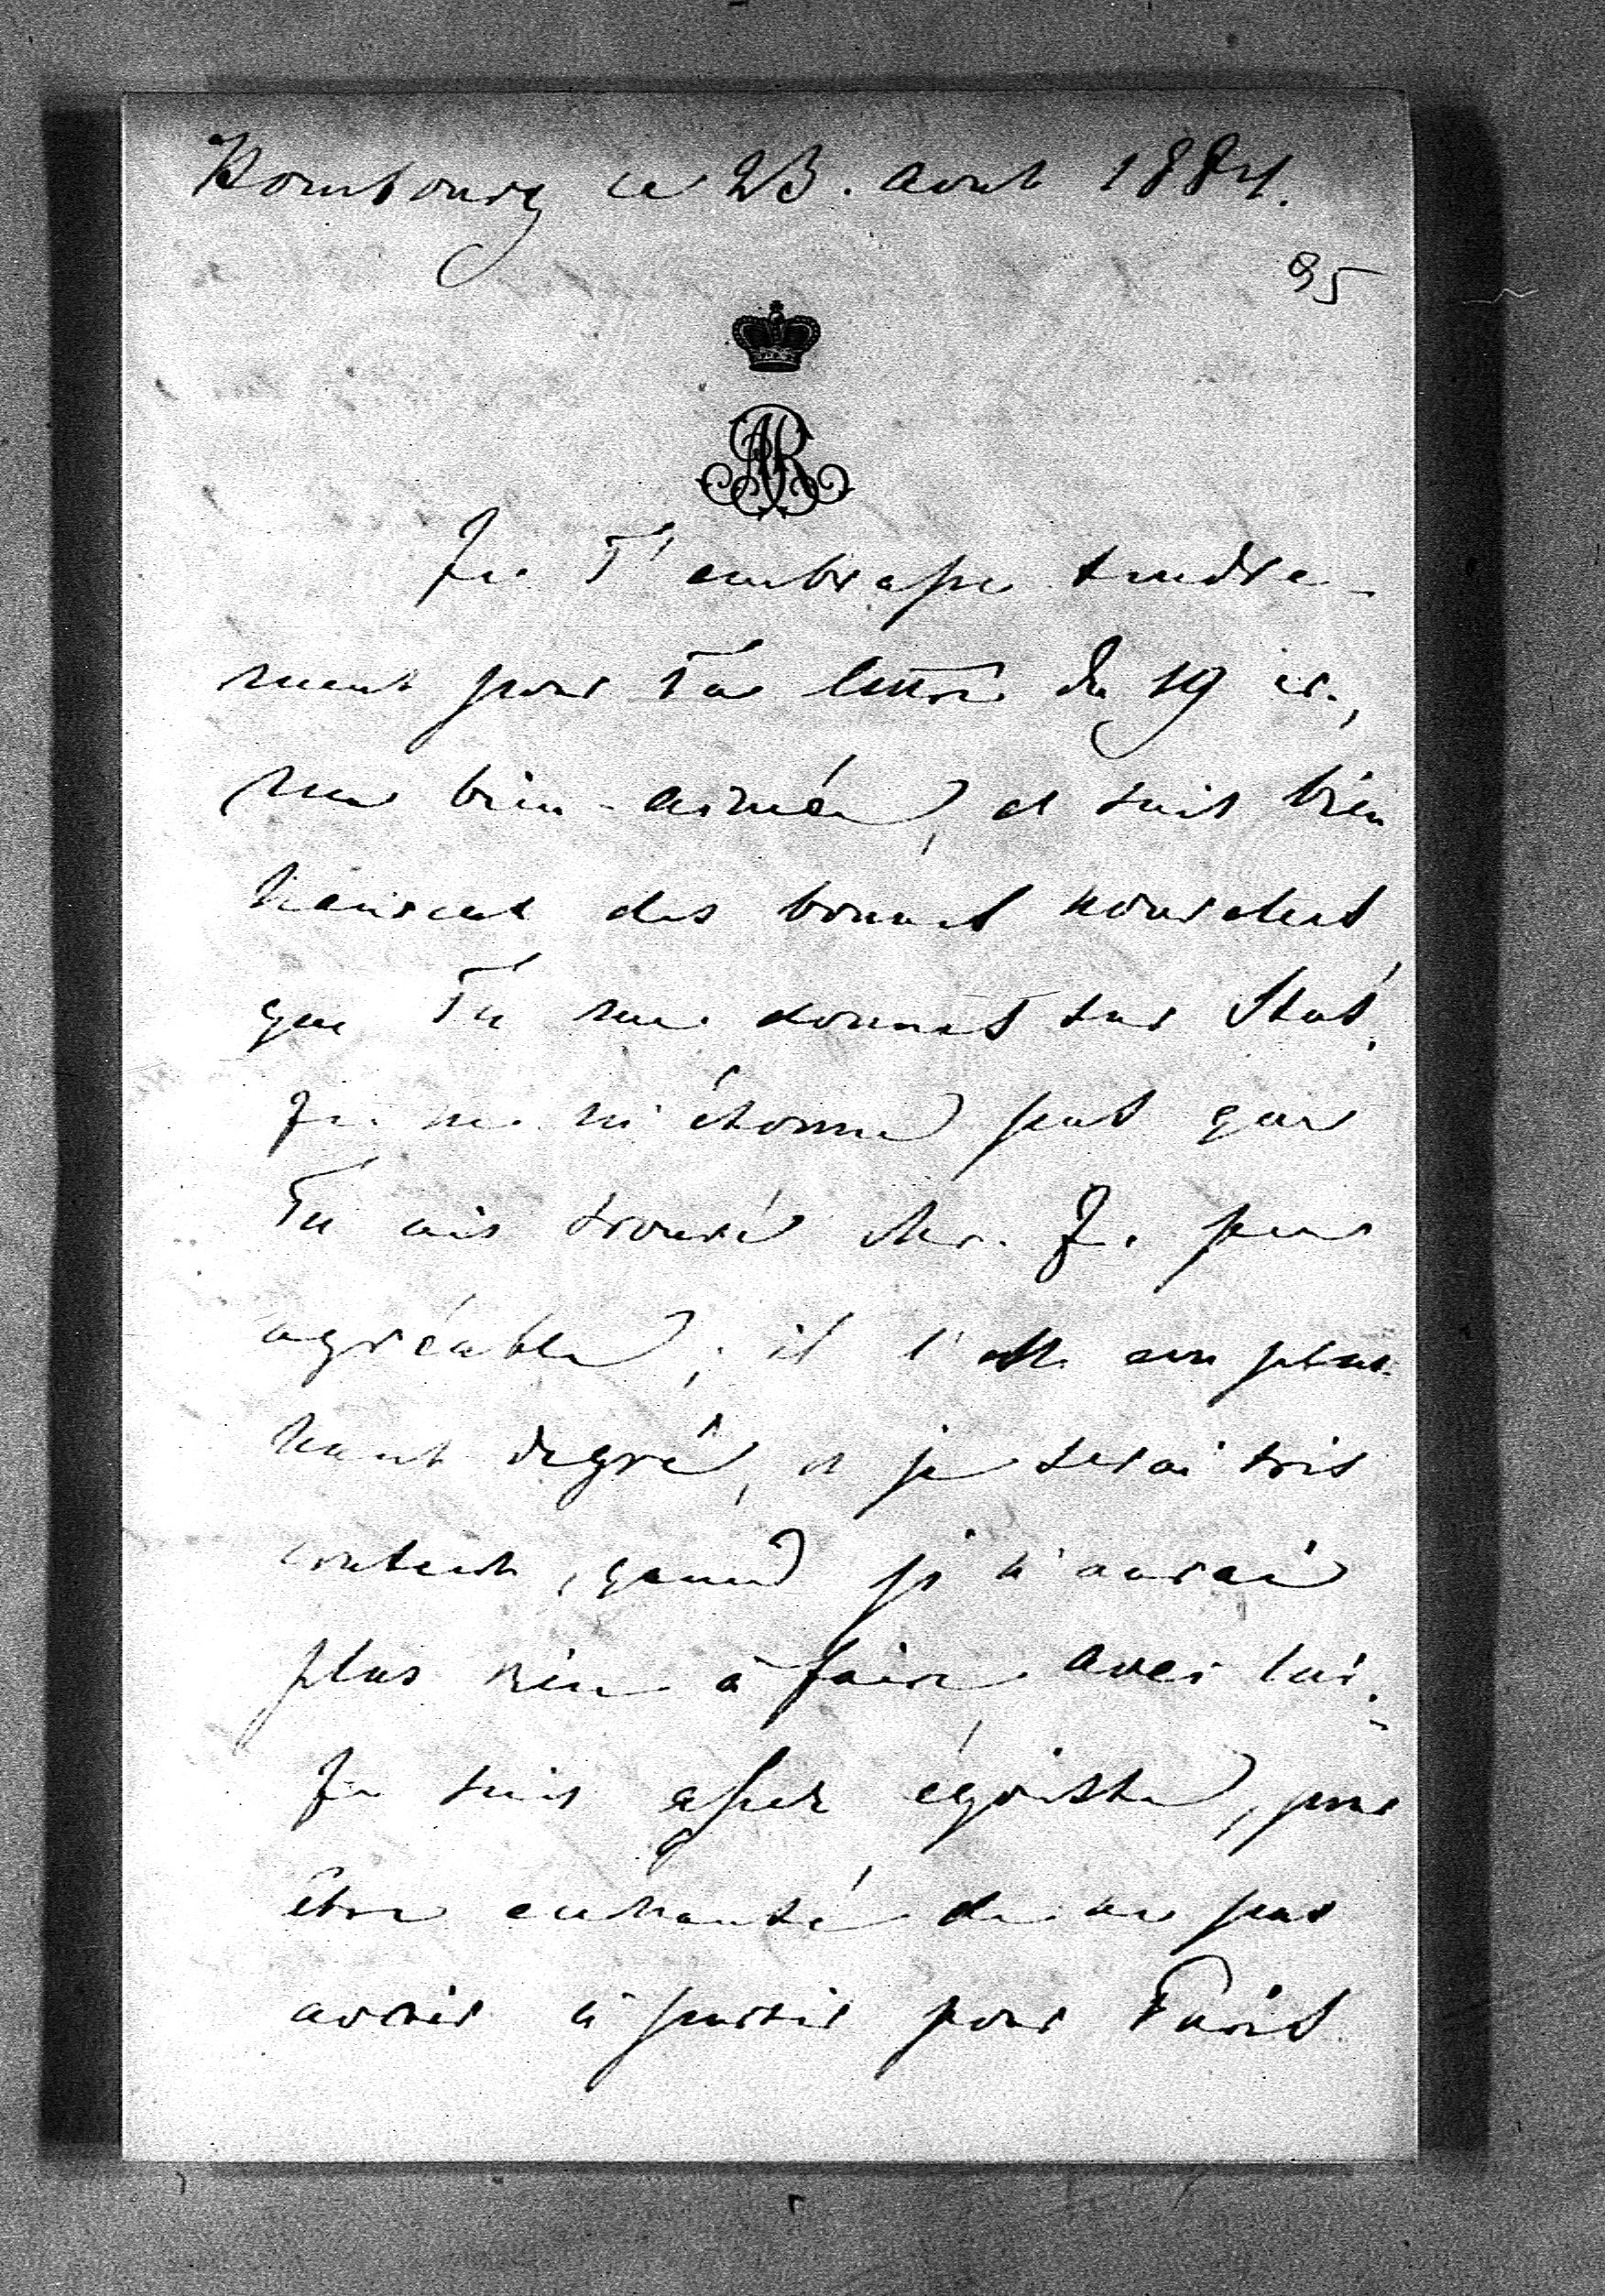 Hombourg ce 23. août 1884.
95
AR
Je T'embrasse tendre-
ment pour Ta lettre du 19 cr.,
ma bien-aimée, et suis bien
heureux des bonnes nouvelles
que Tu me donnes sur
Je ne m'étonne pas que
Tu ais trouvé Mr. F. peu
agréable; il l'est au plus
haut degré, et je serai très
content, quand je n'aurai
plus rien à faire avec lui.
Je suis assez égoiste, pour
être enchanté de ne pas
avoir à partir pour Paris